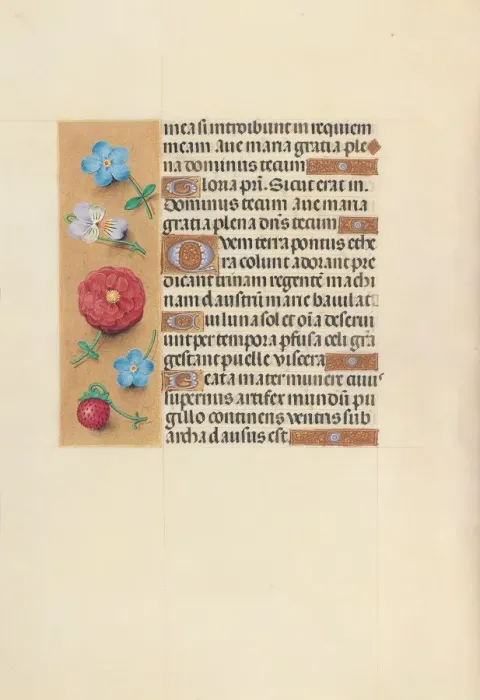 mea si introibunt in requiem
meam Aue maria gratia ple
na dominus tecum
Gloria pr̄i. Sicut erat in.
Dominus tecum Aue maria
gratia plena dn̄s tecum
Quem terra pontus ethe
ra colunt adorant pre
dicant trinam regentē machi
nam claustrū marie baiulat
Cui luna sol et oīa deserui
unt per tempora p̄fusa celi grā
gestant puelle viscera
Beata mater munere cuius
supernus artifex mundū pu
gillo continens ventris sub
archa clausus est.